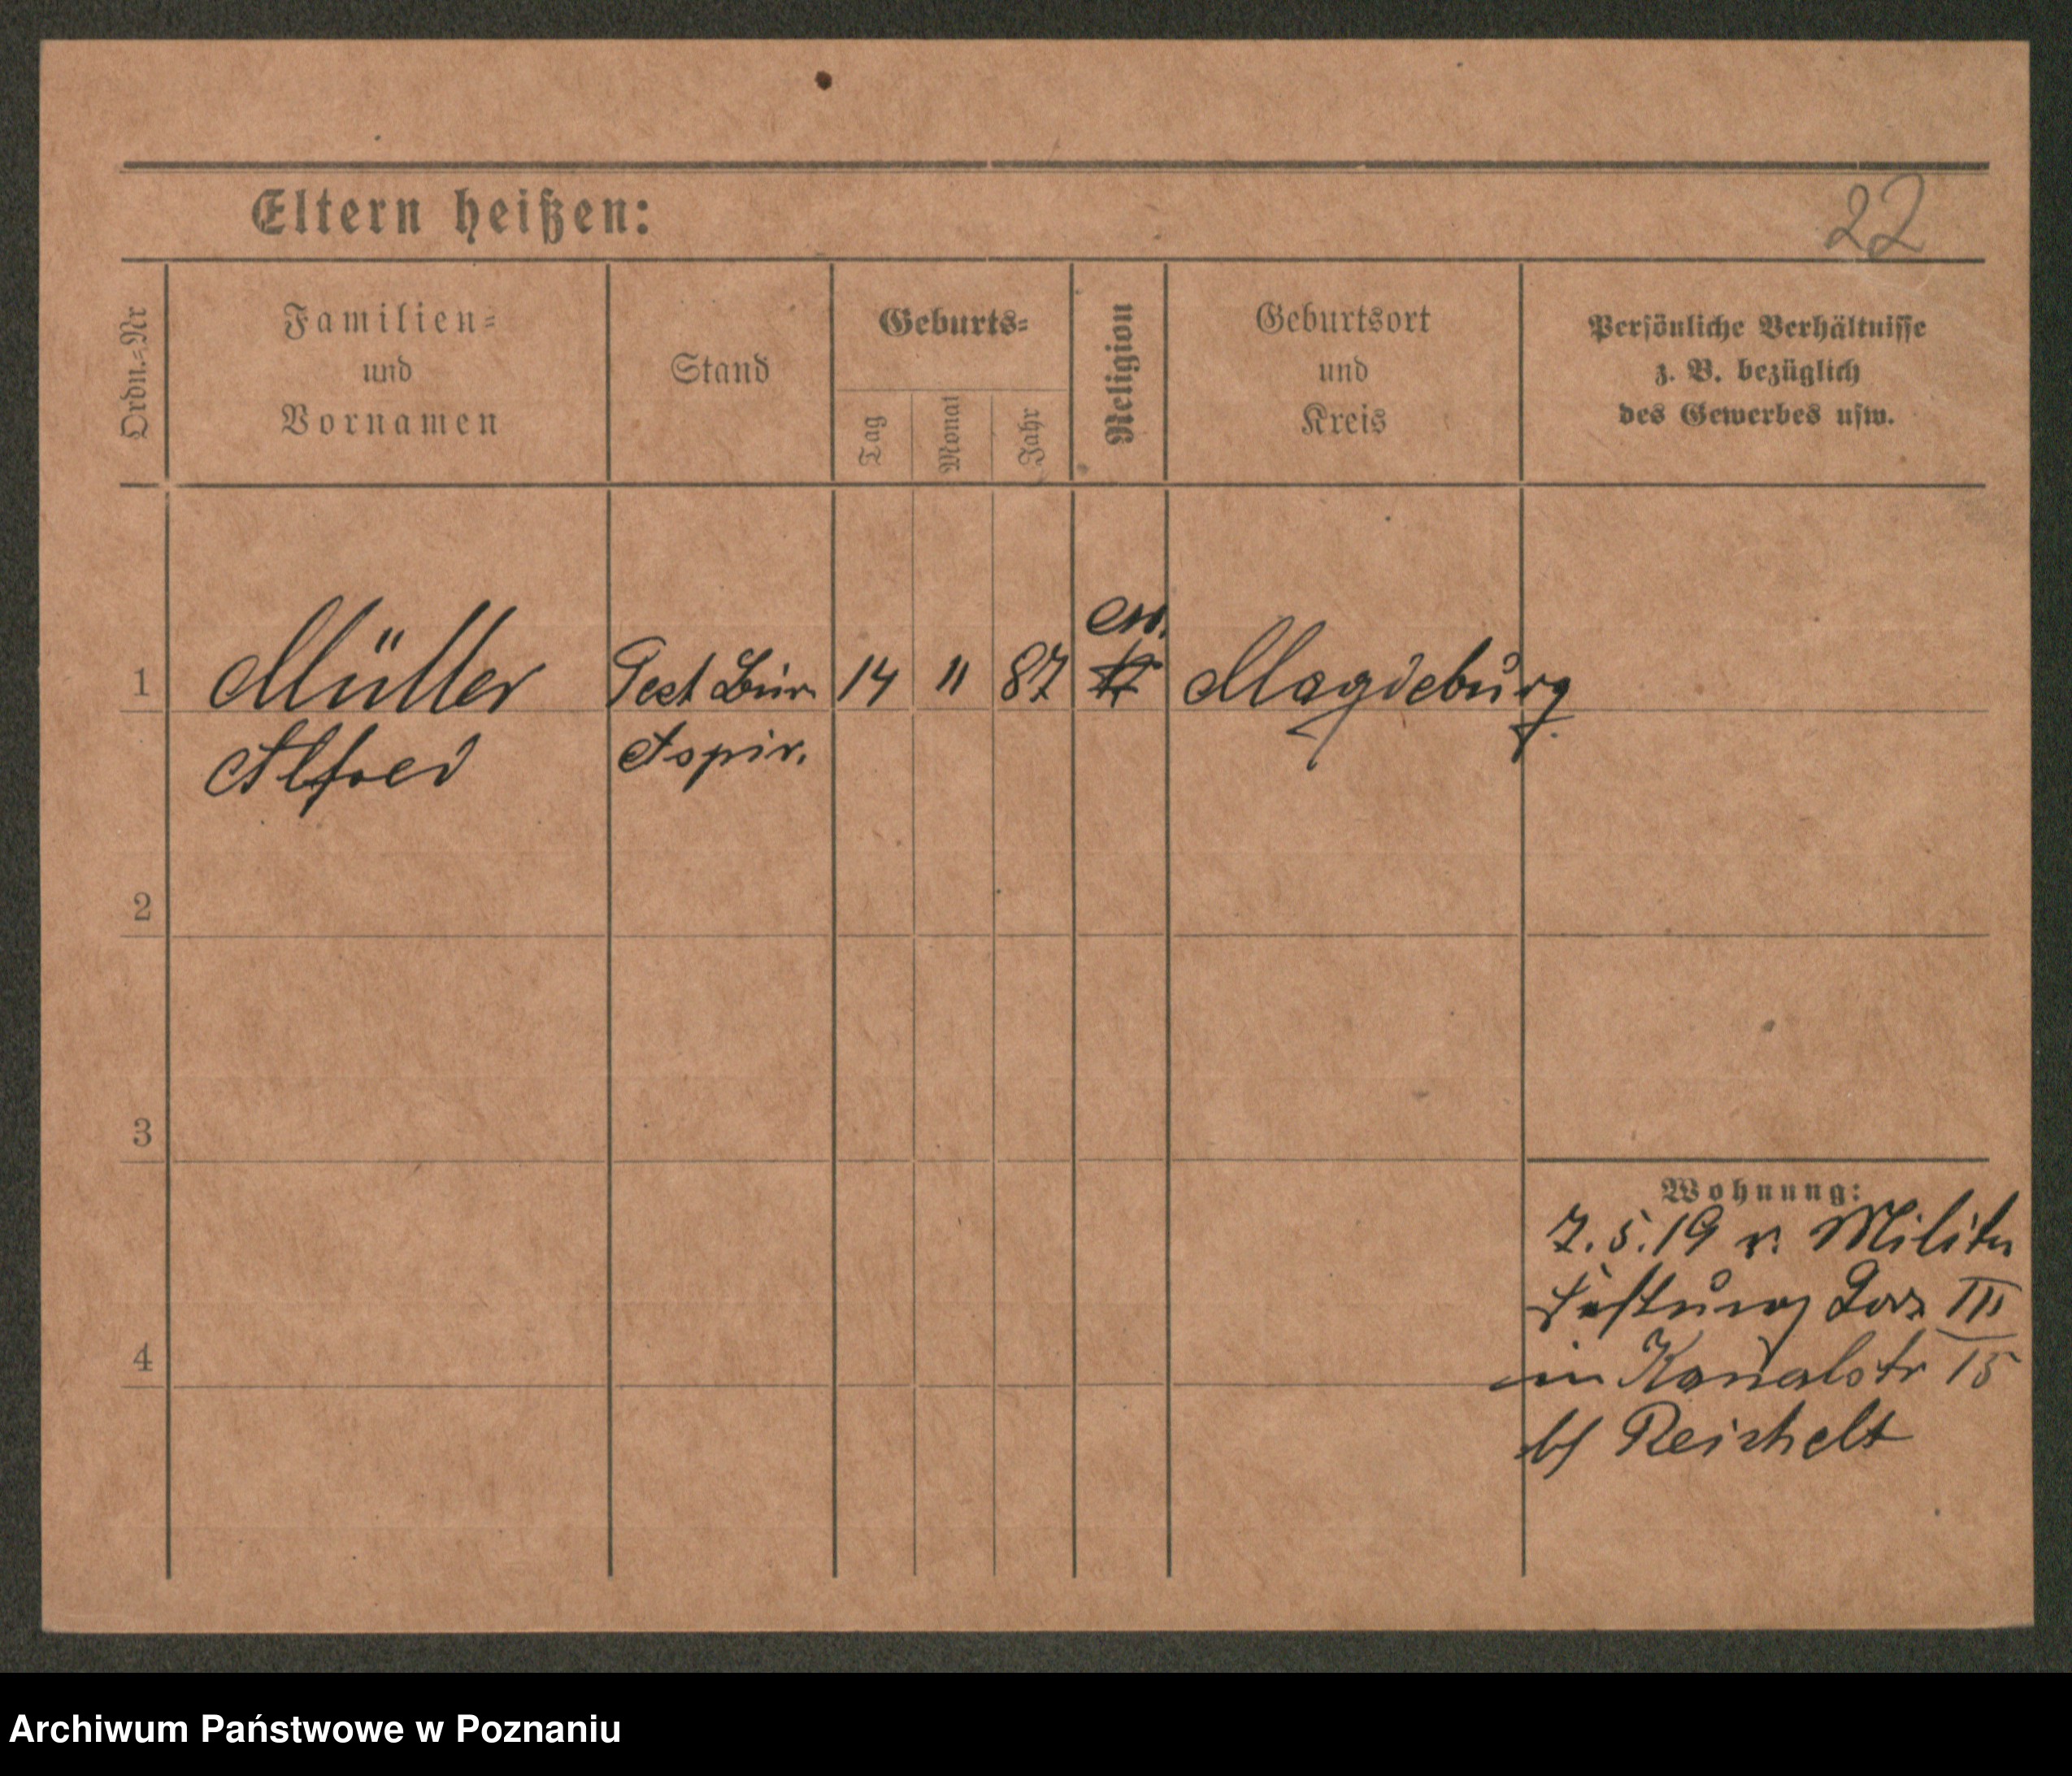 Eltern heißen:
22
Ordn.=Nr
Familien=
und
Vornamen
Stand
Geburts=
Tag
Monat
Jahr
Religion
Geburtsort
und
Kreis
Persönliche Verhältnisse
z. B. bezüglich
des Gewerbes usw.
ev.
1 Müller 14 11 87 Magdeburg
Alfred Aspir.
2
3
Wohnung:
7.5.19 v. Militär
Festung Laz III
4
in Kanalstr 15
b/ Reichelt
Archiwum Państwowe w Poznaniu